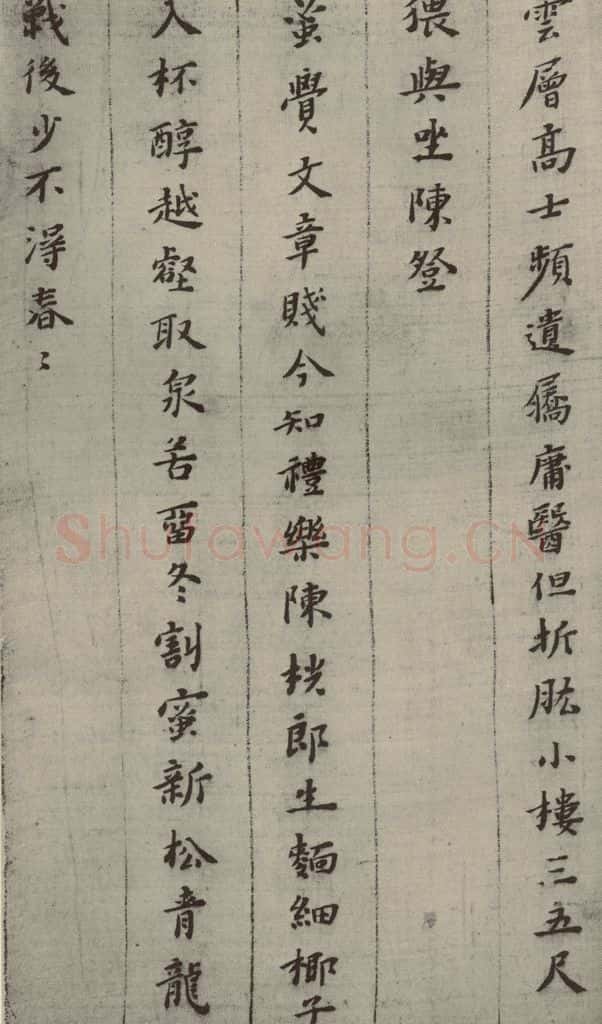 雲層高士頻遺屩庸醫但折肱小樓三五尺
猥與坐陳登
蚤覺文章賤今知禮樂陳桄郎生麵細椰子
入杯醇越壑取泉苦留冬割蜜新松音龍
戰後少不淂春〻
Shufawang.CN